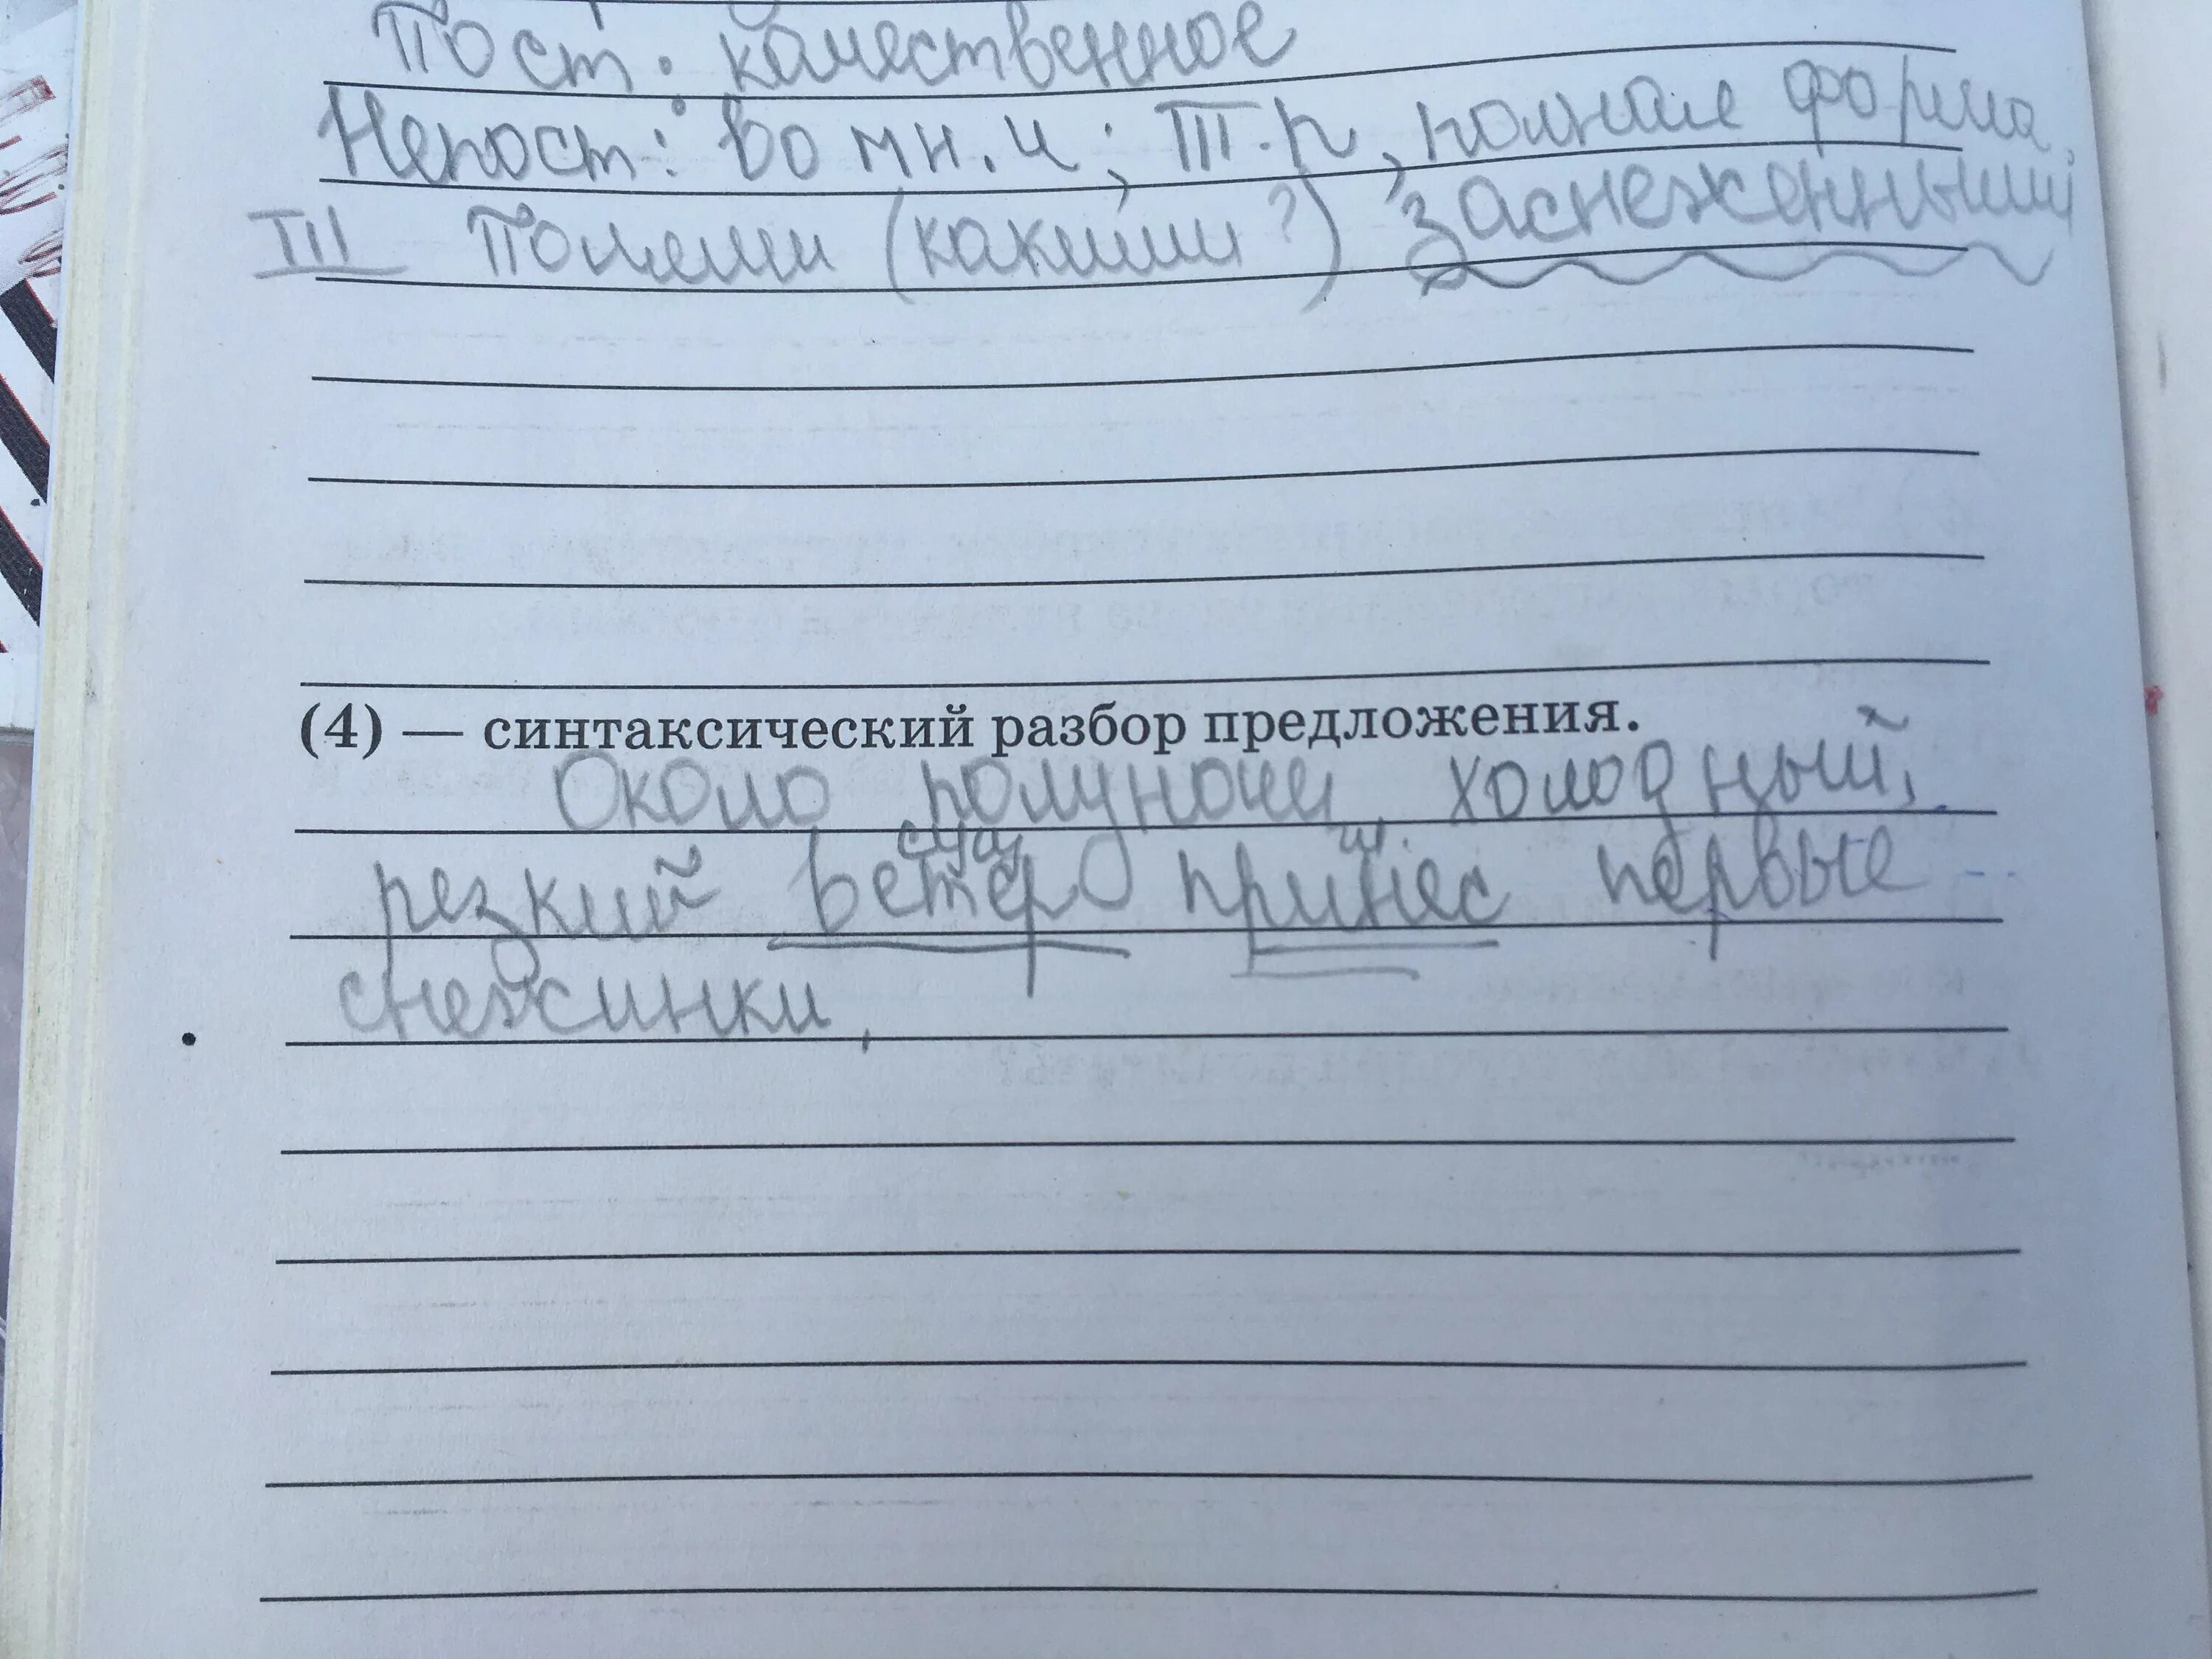 Пост: качественное
Непост: во мн.ч; Т.п, полная форма.
III Полями (какими?) заснеженными
(4) — синтаксический разбор предложения.
Около полуночи холодный,
сущ гл.
резкий ветер принес первые
снежинки.